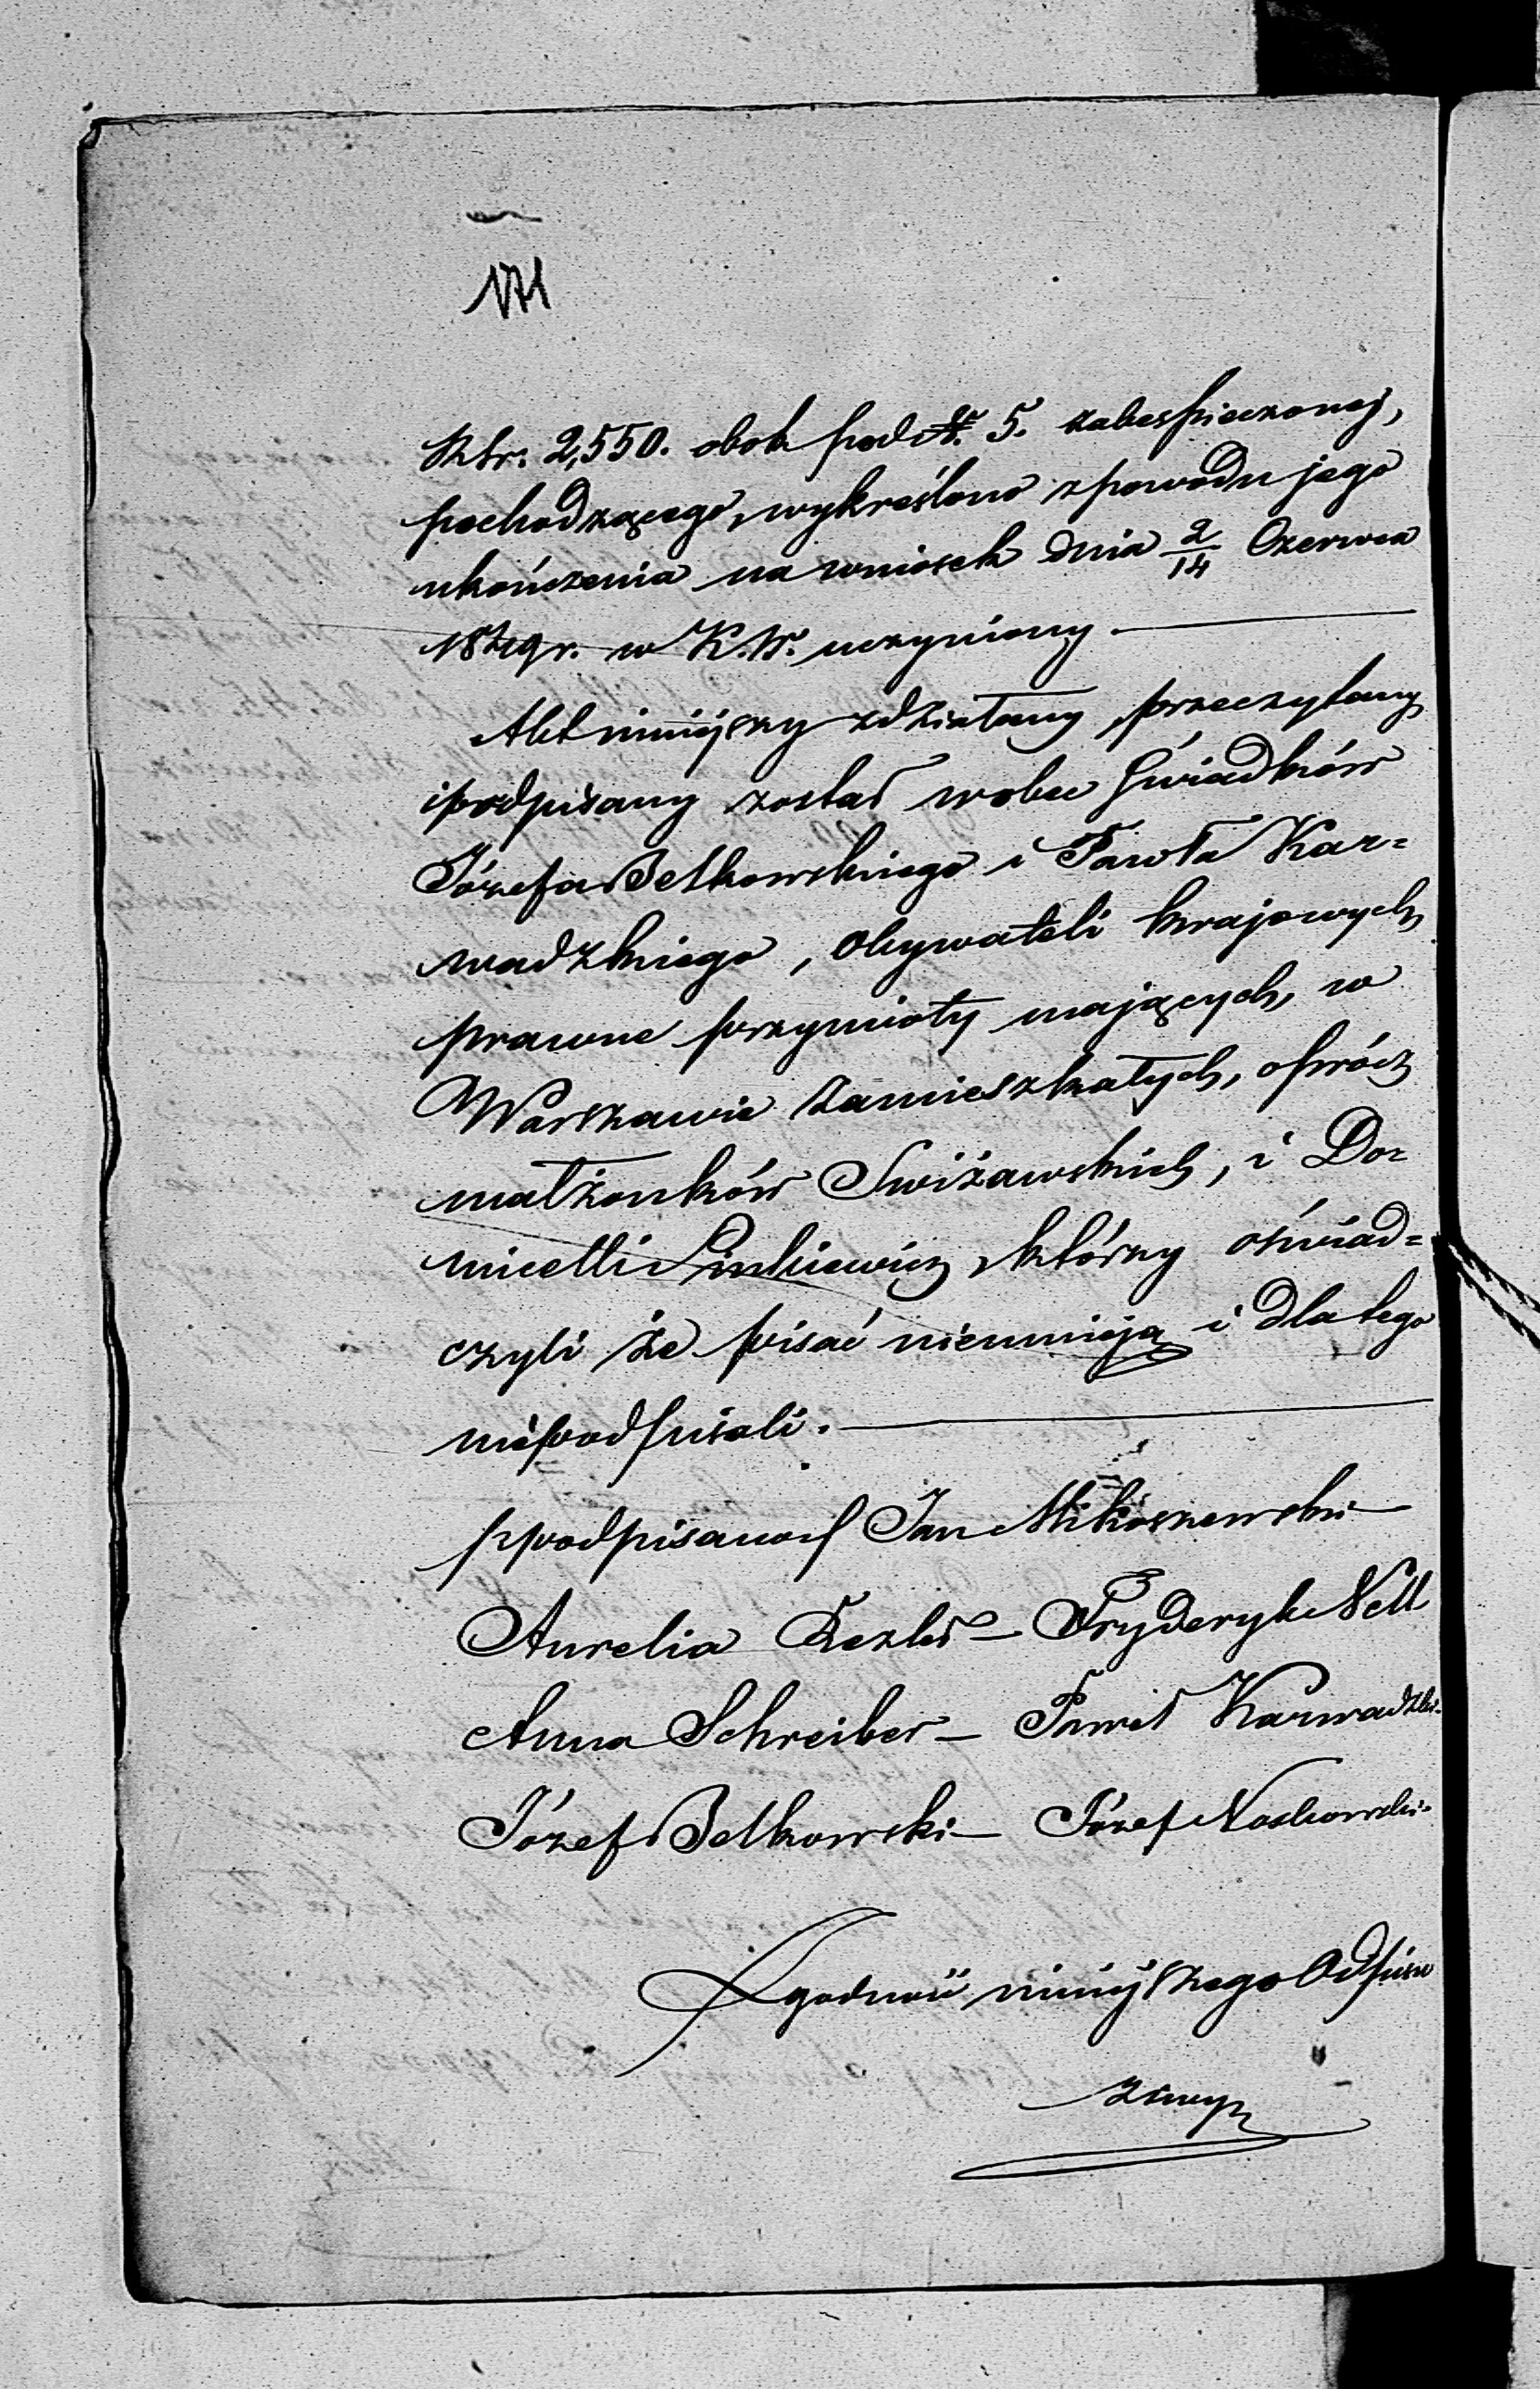 171
Rbr: 2,550. obok pod № 5. zabespieczonej,
pochodzącego, wykreślono z powodu jego
ukończenia na wniosek dnia 2/14 Czerwca
w K. W. uczyniony.
Akt niniejszy zdziałany, przeczytany
i podpisany został wobec Świadków
Józefa Betkowskiego i Pawła Kar=
wadzkiego, Obywateli krajowych
prawne przymioty mających, w
Warszawie zamieszkałych, oprócz
małżonków Swiżawskich, i Do=
micelli Linkiewicz, którzy oświad=
czyli że pisać nieumieją i dla tego
niepodpisali.
/:podpisano:/ Jan Mikoszewski —
Aurelia — Fryderyk Nell
Anna Schreiber — Paweł Karwadzki.
Józef Betkowski — Józef Noskowski.
Zgodność niniejszego Odpisu